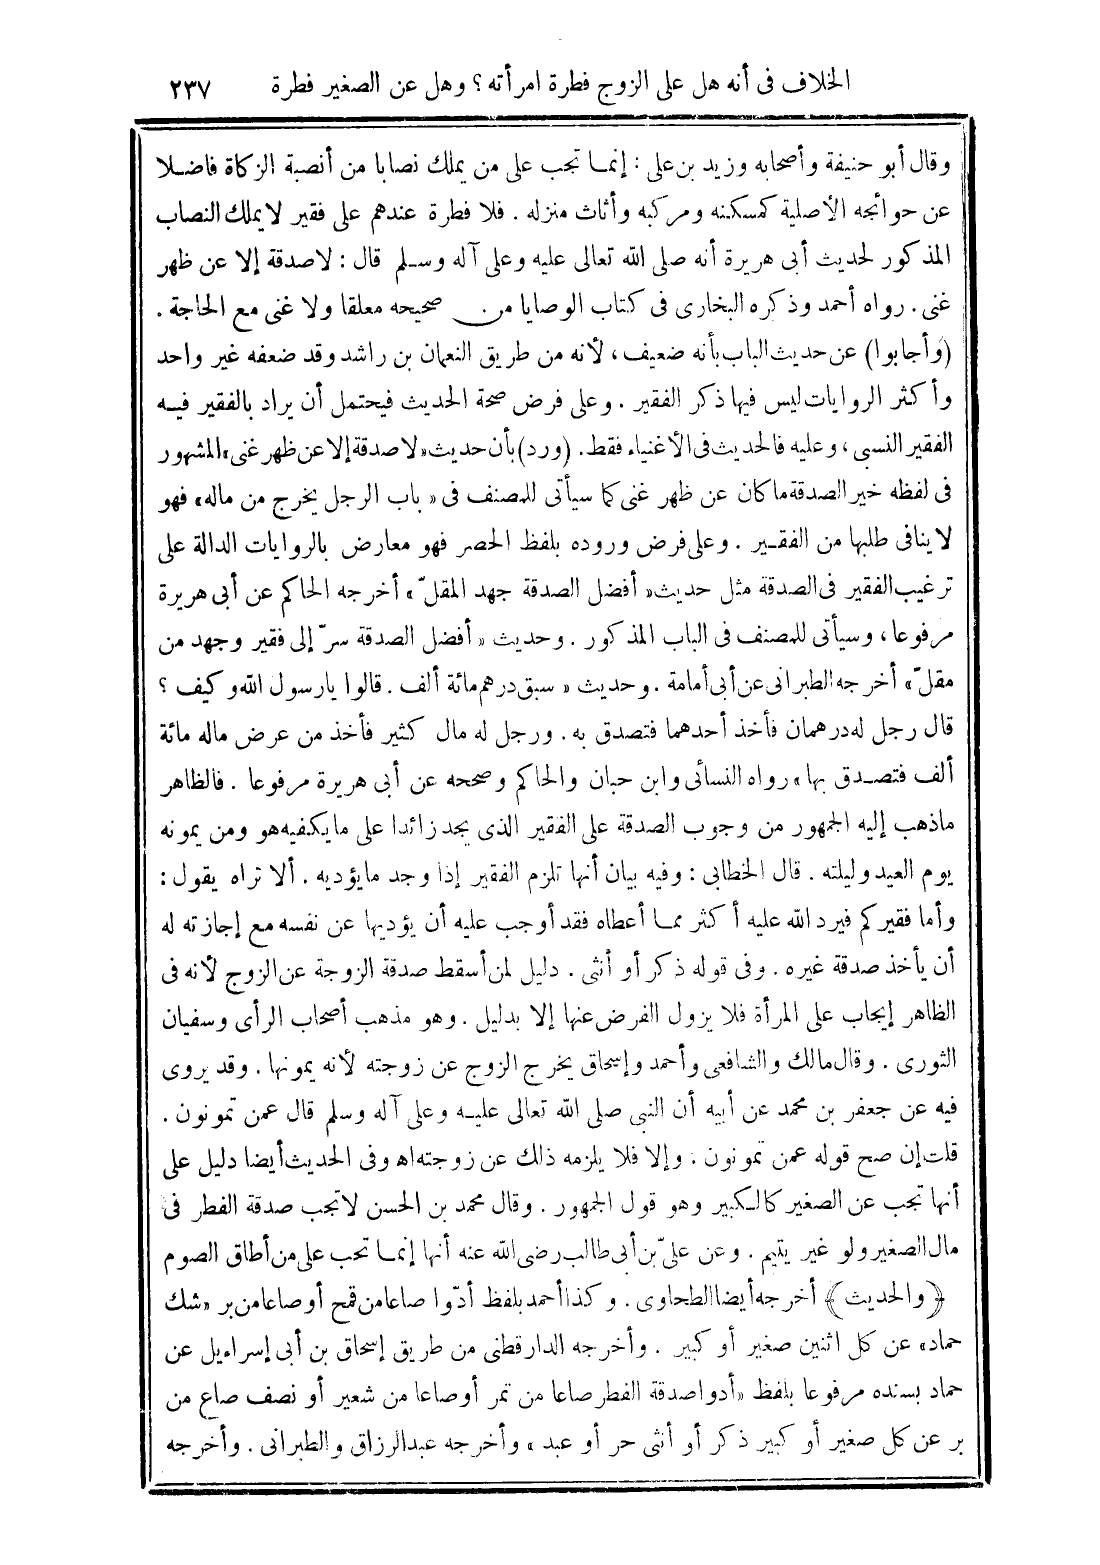 الخلاف فى أنه هل على الزوج فطرة امرأته؟ وهل عن الصغير فطرة ٢٣٧
وقال أبو حنيفة وأصحابه وزيد بن على: إنمـا تجب على من يملك نصابا من أنصبة الزكاة فاضـلا
عن حوائجه الأصلية كمسكنه ومركبه وأثاث منزله. فلا فطرة عندهم على فقير لا يملك النصاب
المذكور لحديث أبى هريرة أنه صلى الله تعالى عليه وعلى آله وسـلم قال: لاصدقة إلا عن ظهر
غنى. رواه أحمد وذكره البخارى فى كتاب الوصايا من صحيحه معلقا ولا غنى مع الحاجة.
(وأجابوا) عن حديث الباب بأنه ضعيف، لأنه من طريق النعمان بن راشد وقد ضعفه غير واحد
وأكثر الروايات ليس فيها ذكر الفقير. وعلى فرض صحة الحديث فيحتمل أن يراد بالفقير فيـه
الفقير النسبى، وعليه فالحديث فى الأغنياء فقط. (ورد) بأن حديث «لاصدقة إلا عن ظهر غنى» المشهور
فى لفظه خير الصدقة ماكان عن ظهر غنى كما سيأتى للمصنف فى «باب الرجل يخرج من ماله» فهو
لاينافى طلبها من الفقـير. وعلى فرض وروده بلفظ الحصر فهو معارض بالروايات الدالة على
ترغيب الفقير فى الصدقة مثل حديث «أفضل الصدقة جهد المقلّ» أخرجه الحاكم عن أبى هريرة
مرفوعا، وسيأتى للمصنف فى الباب المذكور. وحديث «أفضل الصدقة سرّ إلى فقير وجهد من
مقلّ» أخرجه الطبرانى عن أبى أمامة. وحديث «سبق درهم مائة ألف. قالوا يارسول الله وكيف؟
قال رجل له درهمان فأخذ أحدهما فتصدق به. ورجل له مال كثير فأخذ من عرض ماله مائة
ألف فتصـدق بها» رواه النسائى وابن حبان والحاكم وصححه عن أبى هريرة مرفوعا. فالظاهر
ماذهب إليه الجمهور من وجوب الصدقة على الفقير الذى يجد زائدا على مايكفيه هو ومن يمونه
يوم العيد وليلته. قال الخطابى: وفيه بيان أنها تلزم الفقير إذا وجد مايؤديه. ألا تراه يقول:
وأما فقيركم فيرد الله عليه أكثر ممـا أعطاه فقد أوجب عليه أن يؤديها عن نفسه مع إجازته له
أن يأخذ صدقة غيره. وفى قوله ذكر أو أنثى. دليل لمن أسقط صدقة الزوجة عن الزوج لأنه فى
الظاهر إيجاب على المرأة فلا يزول الفرض عنها إلا بدليل. وهو مذهب أصحاب الرأى وسفيان
الثورى. وقال مالك والشافعى وأحمد وإسحاق يخرج الزوج عن زوجته لأنه يمونها. وقد يروى
فيه عن جعفر بن محمد عن أبيه أن النبى صلى الله تعالى عليـه وعلى آله وسلم قال عمن تمونون.
قلت إن صح قوله عمن تمونون. وإلا فلا يلزمه ذلك عن زوجته اه وفى الحديث أيضا دليل على
أنها تجب عن الصغير كالكبير وهو قول الجمهور. وقال محمد بن الحسن لاتجب صدقة الفطر فى
مال الصغير ولو غير يتيم. وعن علىّ بن أبى طالب رضى الله عنه أنها إنمـا تجب على من أطاق الصوم
﴿والحديث﴾ أخرجه أيضا الطحاوى. وكذا أحمد بلفظ أدّوا صاعا من قمح أوصاعا من بر «شك
حماد» عن كل اثنين صغير أو كبير. وأخرجه الدارقطنى من طريق إسحاق بن أبى إسراءيل عن
حماد بسنده مرفوعا بلفظ «أدوا صدقة الفطر صاعا من تمر أوصاعا من شعير أو نصف صاع من
بر عن كل صغير أو كبير ذكر أو أنثى حر أو عبد» وأخرجه عبدالرزاق والطبرانى. وأخرجه